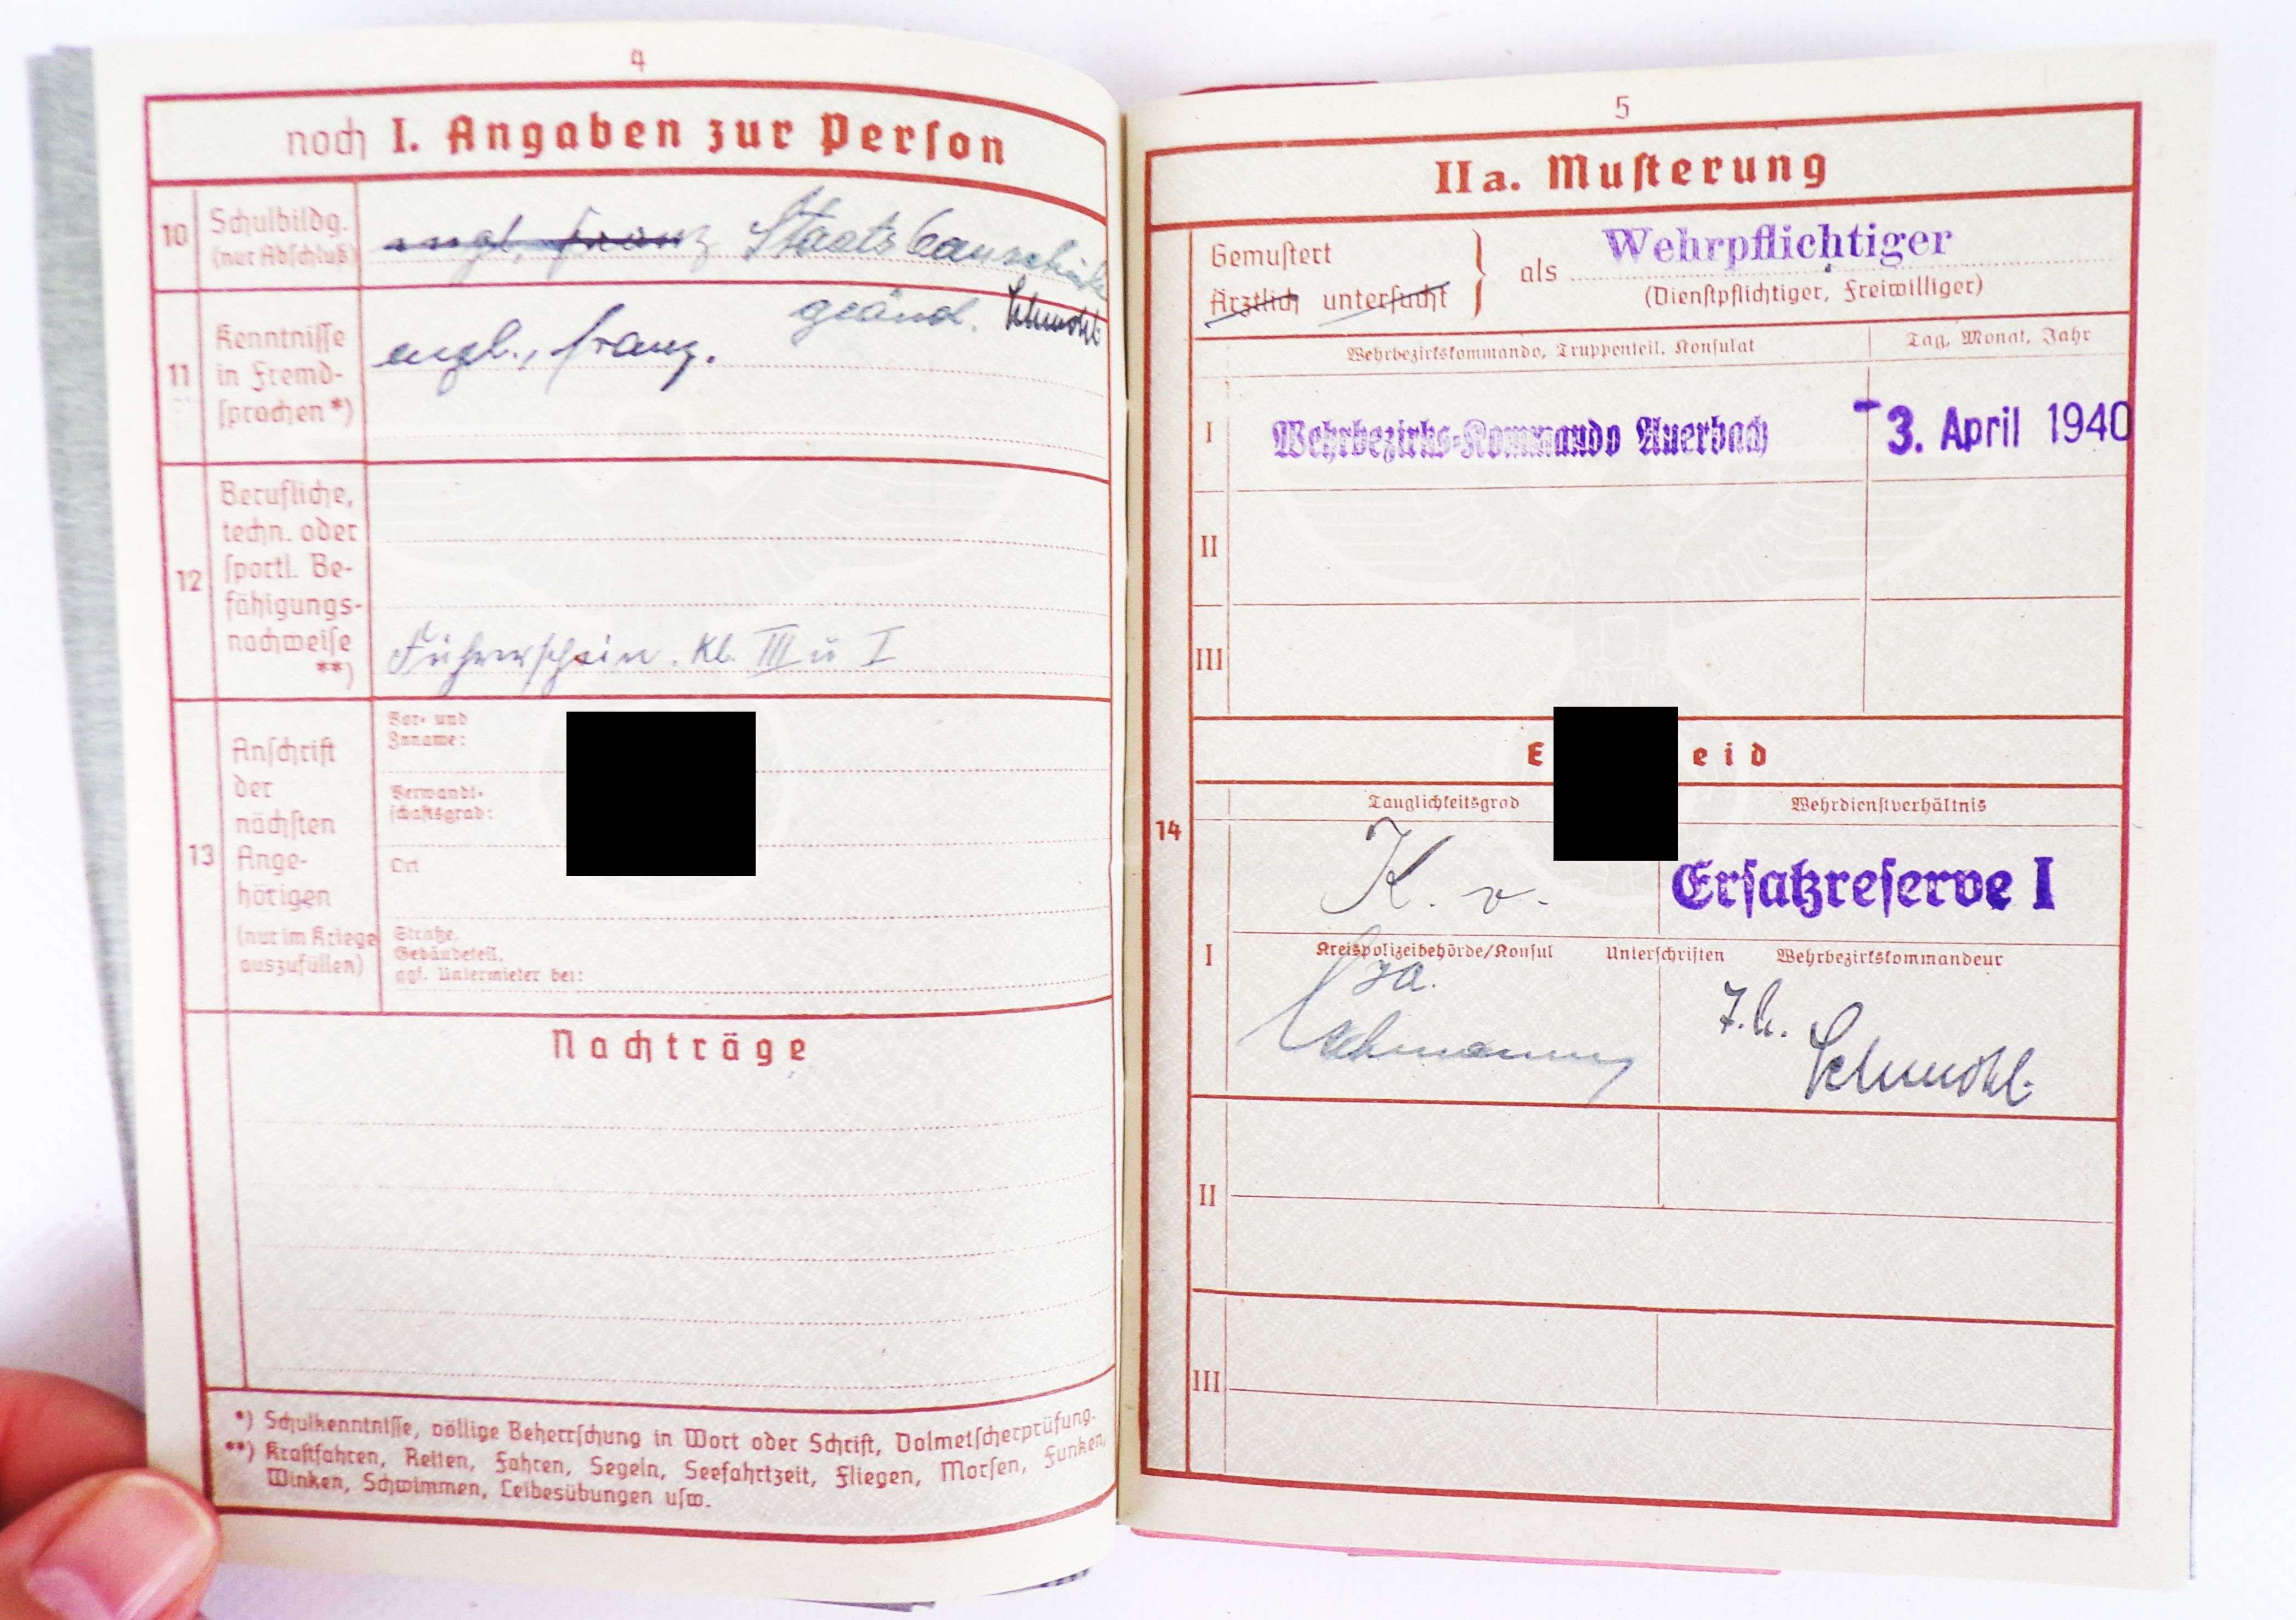 4
noch I. Angaben zur Perſon
10 Schulbildg. (nur Abſchluß)
engl., franz Staatsbauschule
geänd. Schmohl.
11 Kenntniſſe in Fremd- ſprachen *)
engl., franz.
12 Berufliche, techn. oder ſportl. Be- fähigungs- nachweiſe **)
Führerschein. Kl. III u I
13 Anſchrift der nächſten Ange- hörigen (nur im Kriege auszufüllen)
Vor- und Zuname:
Verwandt- ſchaftsgrad:
Ort
Straße, Gebäudeteil, ggf. Untermieter bei:
Nachträge
*) Schulkenntniſſe, völlige Beherrſchung in Wort oder Schrift, Dolmetſcherprüfung.
**) Kraftfahren, Reiten, Fahren, Segeln, Seefahrtzeit, Fliegen, Morſen, Funken,
Winken, Schwimmen, Leibesübungen uſw.
5
IIa. Muſterung
Gemuſtert
Ärztlich unterſucht
als Wehrpflichtiger
(Dienſtpflichtiger, Freiwilliger)
Wehrbezirkskommando, Truppenteil, Konſulat
Tag, Monat, Jahr
I Wehrbezirks-Kommando Auerbach -3. April 1940
II
III
E eid
14
Tauglichkeitsgrad Wehrdienſtverhältnis
K. v. Erſatzreſerve I
I Kreispolizeibehörde/Konſul Unterſchriften Wehrbezirkskommandeur
J.A.
Schmohl.
II
III